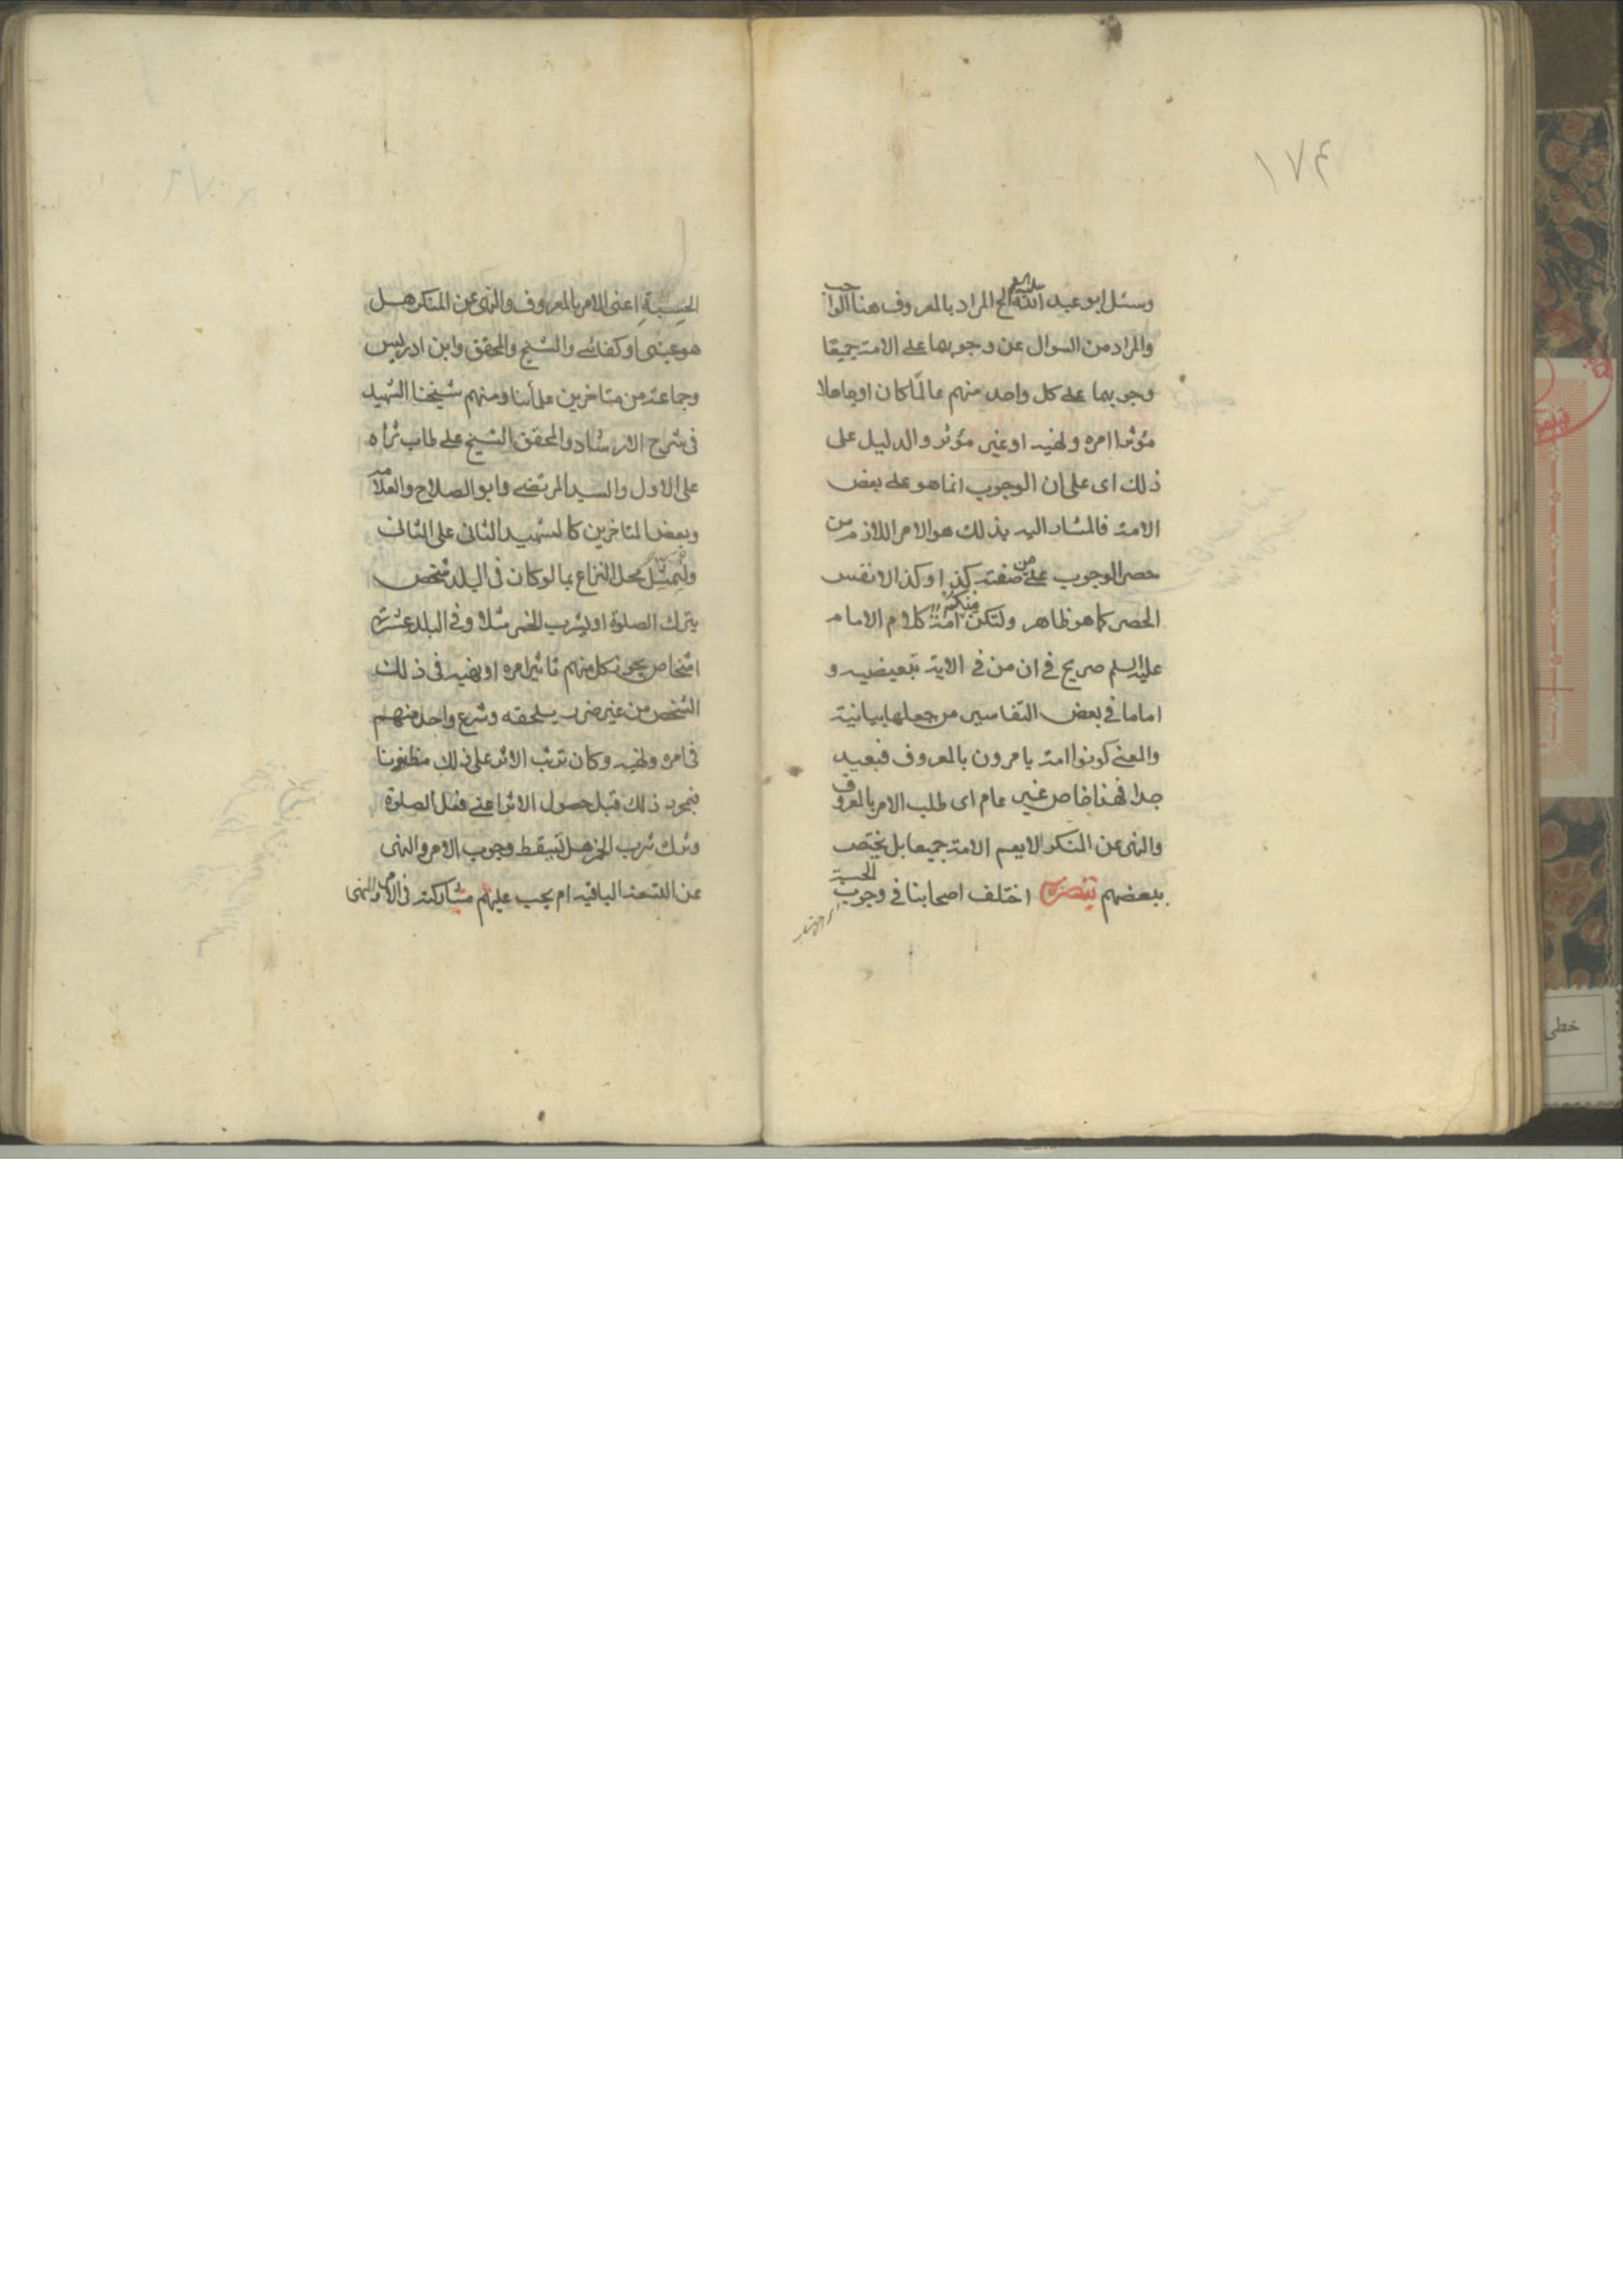 ١٧٤
وسئل ابو عبد الله عليه السلم الخ المراد بالمعروف هنا الواجب
والمراد من السوال عن وجوبهما على الامة جميعا
وجوبهما على كل واحد منهم عالما كان او جاهلا
مؤثرا امره ونهيه او غير مؤثر والدليل على
ذلك اى على ان الوجوب انما هو على بعض
الامة فالمشار اليه بذلك هو الامر اللازم من
حصر الوجوب على من صفته كذا وكذا لا نفس
الحصر كما هو ظاهر ولتكن منكم امة كلام الامام
عليه السلم صريح فى ان من فى الاية تبعيضيه و
اما ما فى بعض التفاسير من جعلها بيانية
والمعنى كونوا امة يامرون بالمعروف فبعيد
جدا فهذا خاص غير عام اى طلب الامر بالمعروف
والنهى عن المنكر لا يعم الامة جميعا بل يختص
ببعضهم تبصرة اختلف اصحابنا فى وجوب الحسبة
الحسبة اعنى الامر بالمعروف والنهى عن المنكر هل
هو عينى او كفائى والشيخ والمحقق وابن ادريس
وجماعة من متاخرين علمائنا ومنهم شيخنا الشهيد
فى شرح الارشاد والمحقق الشيخ على طاب ثراه
على الاول والسيد المرتضى وابو الصلاح والعلامة
وبعض المتاخرين كالشهيد الثانى على الثانى
وليمثل محل النزاع بما لو كان فى البلد شخص
يترك الصلوة او يشرب الخمر مثلا وفى البلد عشرة
اشخاص يجوز كل منهم تاثير امره او نهيه فى ذلك
الشخص من غير ضرر يلحقه وشرع واحد منهم
فى امره ونهيه وكان ترتب الاثر على ذلك مظنونا
فبمجرد ذلك قبل حصول الاثر اعنى فعل الصلوة
وترك شرب الخمر هل يسقط وجوب الامر والنهى
عن التسعة الباقيه ام يجب عليهم مشاركته فى الامر والنهى
خطى